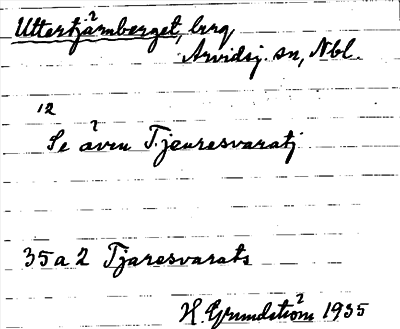 Uttertjärnberget, brg,
Arvidsj. sn, Nbl.
12
Se även Tjauresvaratj
35a2 Tjaresvarats
H. Grundström 1935